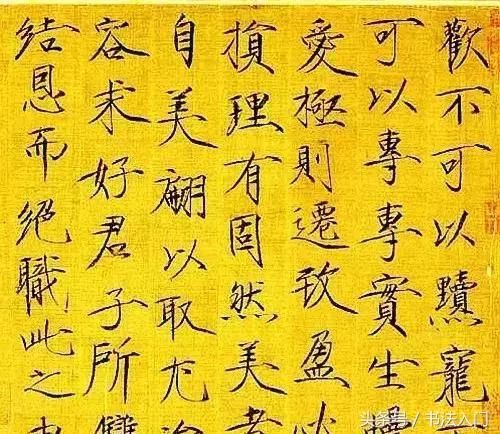 歡不可以黷寵
可以專專實生
愛極則遷致盈必
損理有固然美者
自美翩以取尤冶
容求好君子所讎
結恩而絕職此之
头条号 / 书法入门